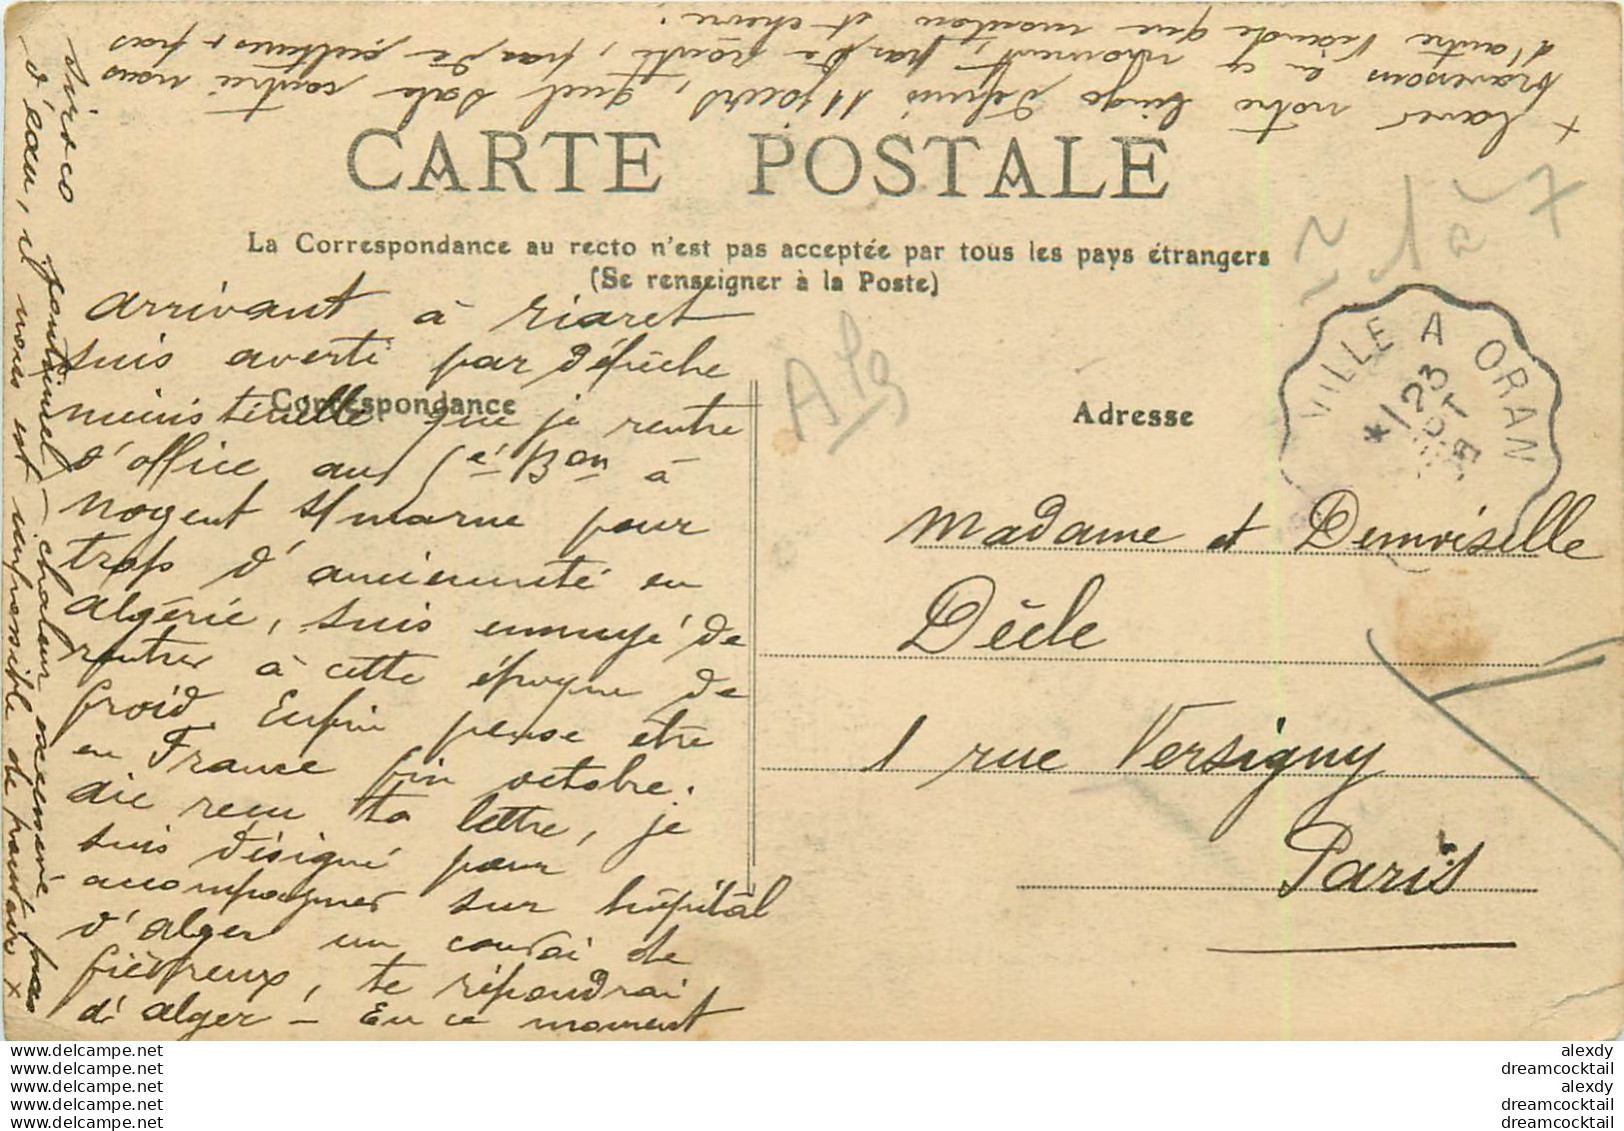 CARTE POSTALE
La Correspondance au recto n'est pas acceptée par tous les pays étrangers
(Se renseigner à la Poste)
Correspondance
Adresse
arrivant à Tiaret
suis averti par dépêche
ministérielle que je rentre
d'office au 5e Bon à
Nogent s/ marne pour
trop d'ancienneté en
algérie, suis ennuyé de
rentrer à cette époque de
froid. Enfin pense être
en France fin octobre.
aie reçu ta lettre, je
suis désigné pour
accompagner sur hôpital
d'alger un convoi de
fièvreux, te répondrai
d'alger – En ce moment
sirocco continuel, chaleur excessive, pas
d'eau, il nous est impossible de faire +
+ laver notre linge depuis 11 jours, quel sale contrée nous
traversons en ce moment, pas de route, pas de culture, pas
d'autre viande que mouton et chèvre.
Madame et Demoiselle
Dècle
1 rue Versigny
Paris
Alg
1 à 7
VILLE A ORAN
23
OCT
www.delcampe.net
www.delcampe.net
www.delcampe.net
www.delcampe.net
www.delcampe.net
alexdy
dreamcocktail
alexdy
dreamcocktail
dreamcocktail